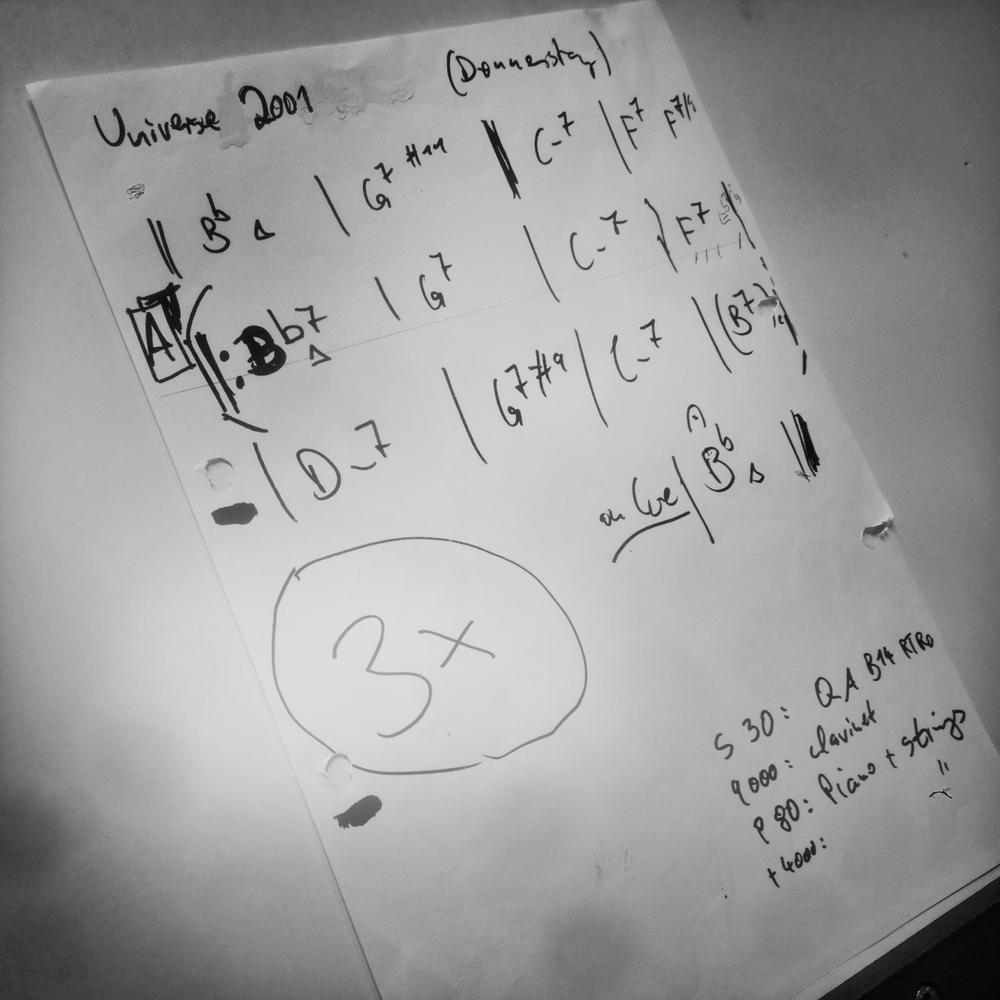 Universe 2001 (Donnerstag)
|| Bb Δ | G7 #11 || C-7 | F7 F7/9
A ||: Bb7 Δ | G7 | C-7 | F7
| D-7 | G7#9 | C-7 | (B7)
on Cue | Bb Δ ||
3x
S 30: QA B14 RTRO
9000: clavinet
P 80: Piano + strings
+4000: "